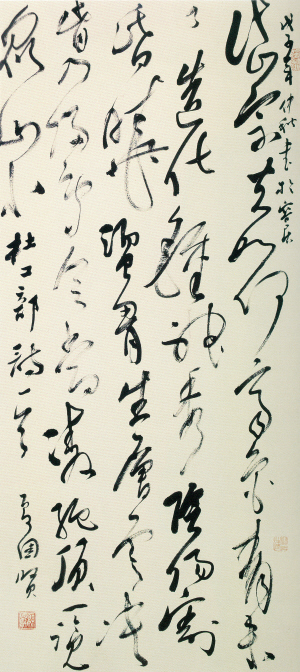 戊子年仲秋書於
岱宗夫如何齊魯青未
了造化鍾神秀陰陽割
昏曉盪胸生層雲決
眥入歸鳥會當凌絕頂一覽
眾山小杜工部詩一首